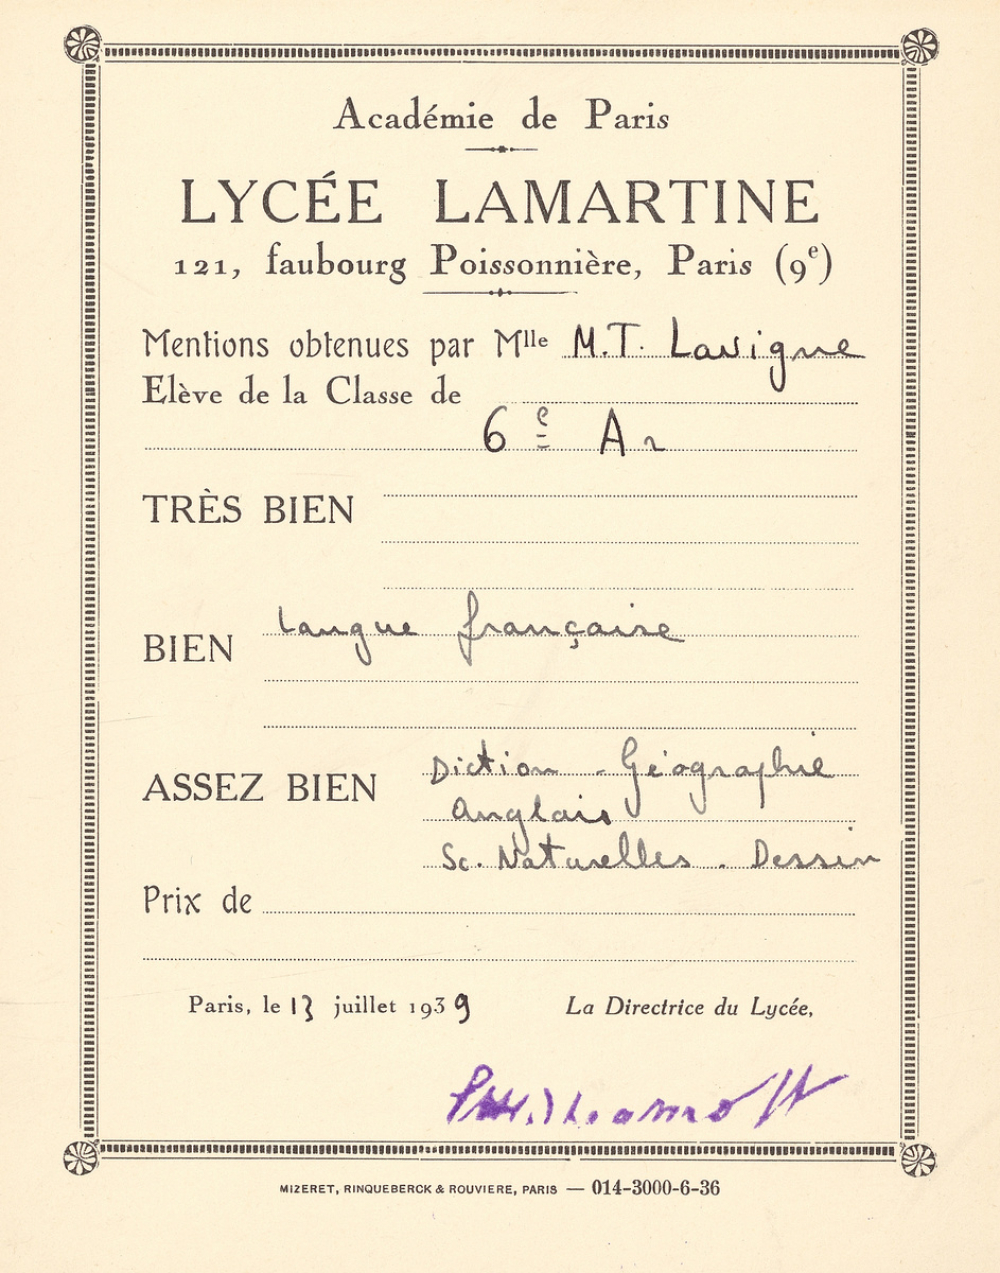 Académie de Paris
LYCÉE LAMARTINE
121, faubourg Poissonnière, Paris (9e)
Mentions obtenues par Mlle M.T. Lavigne
Elève de la Classe de
6e A2
TRÈS BIEN
BIEN Langue française
ASSEZ BIEN Diction - Géographie
Anglais
Sc. Naturelles. Dessin
Prix de
Paris, le 13 juillet 1939 La Directrice du Lycée,
MIZERET, RINQUEBERCK & ROUVIERE, PARIS — 014-3000-6-36